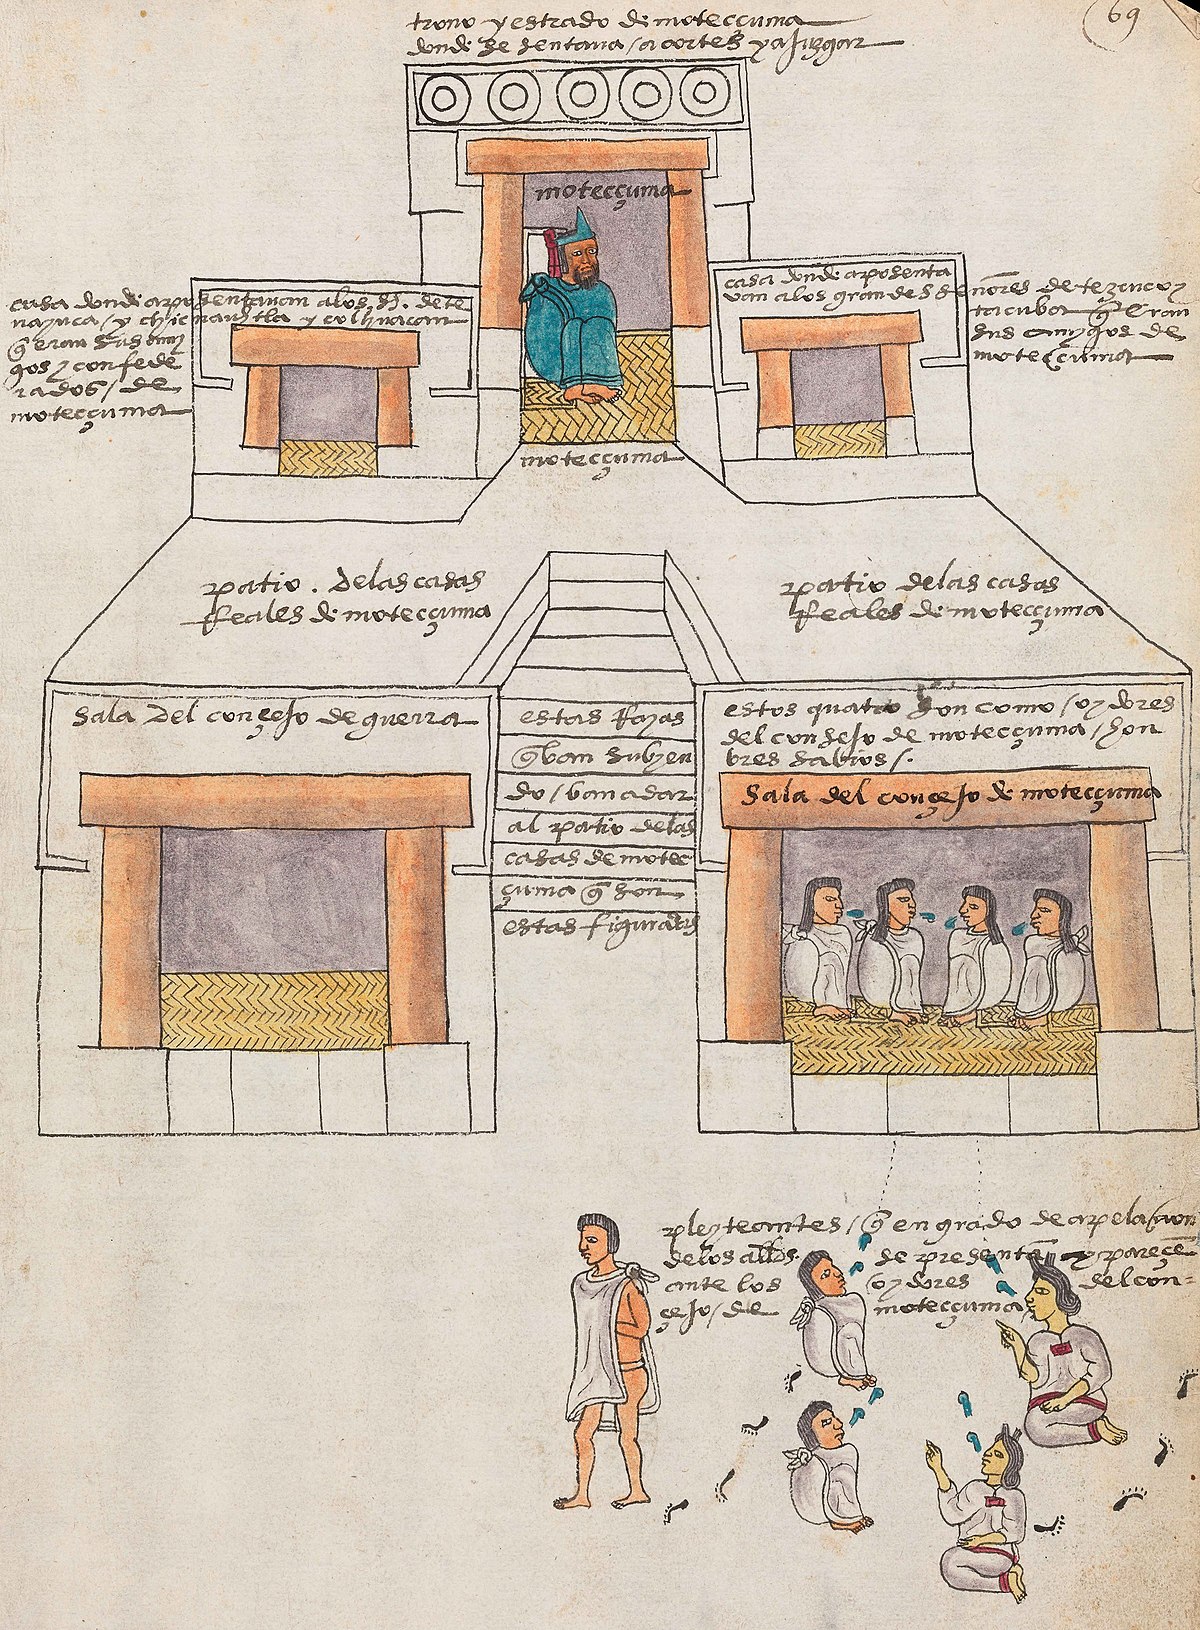 69
trono y estrado de motecçuma
donde se sentava / a cortes y a juzgar
motecçuma
casa donde aposentavan a los s.s. de te
nayuca / y chicnauhtla y colhuacan
q̃ eran sus ami
gos y confede
rados / de
motecçuma
casa donde aposenta
van a los grandes señores de tezcuco y
tacuba q̃ eran
sus amygos de
motecçuma
motecçuma
patio . de las casas
Reales de motecçuma
patio de las casas
Reales de motecçuma
Sala del conçejo de guerra
estas Rayas
q̃ van subyen
do / van a dar
al patio de las
casas de motec
çuma q̃ son
estas figuradas
estos quatro son como / oydores
del consejo de motecçuma / hon
bres sabios /.
Sala del conçejo de motecçuma
pleyteantes / q̃ en grado de apelaçion
de los allds. se presentã y pareçẽ
ante los oydores del con=
çejo / de motecçuma /